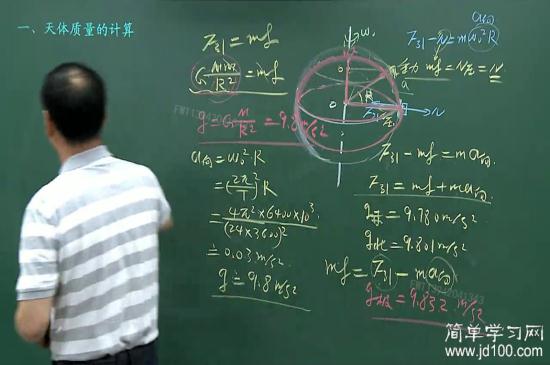 一、天体质量的计算
F引 = mg
G Mm/R² = mg
g = G M/R² = 9.8 m/s²
a向 = ω₀² R
= (2π/T)² R
= 4π² × 6400 × 10³ / (24 × 3600)²
≐ 0.03 m/s²
g ≐ 9.8 m/s²
ω₀
F引 − N = m ω₀² R
a向
重力 mg = N压 = N
R
F引
N
F引 − mg = m a向
F引 = mg + m a向
g = 9.780 m/s²
g北 = 9.801 m/s²
mg = F引 − m a向
g极 = 9.832 m/s²
简单学习网
www.jd100.com